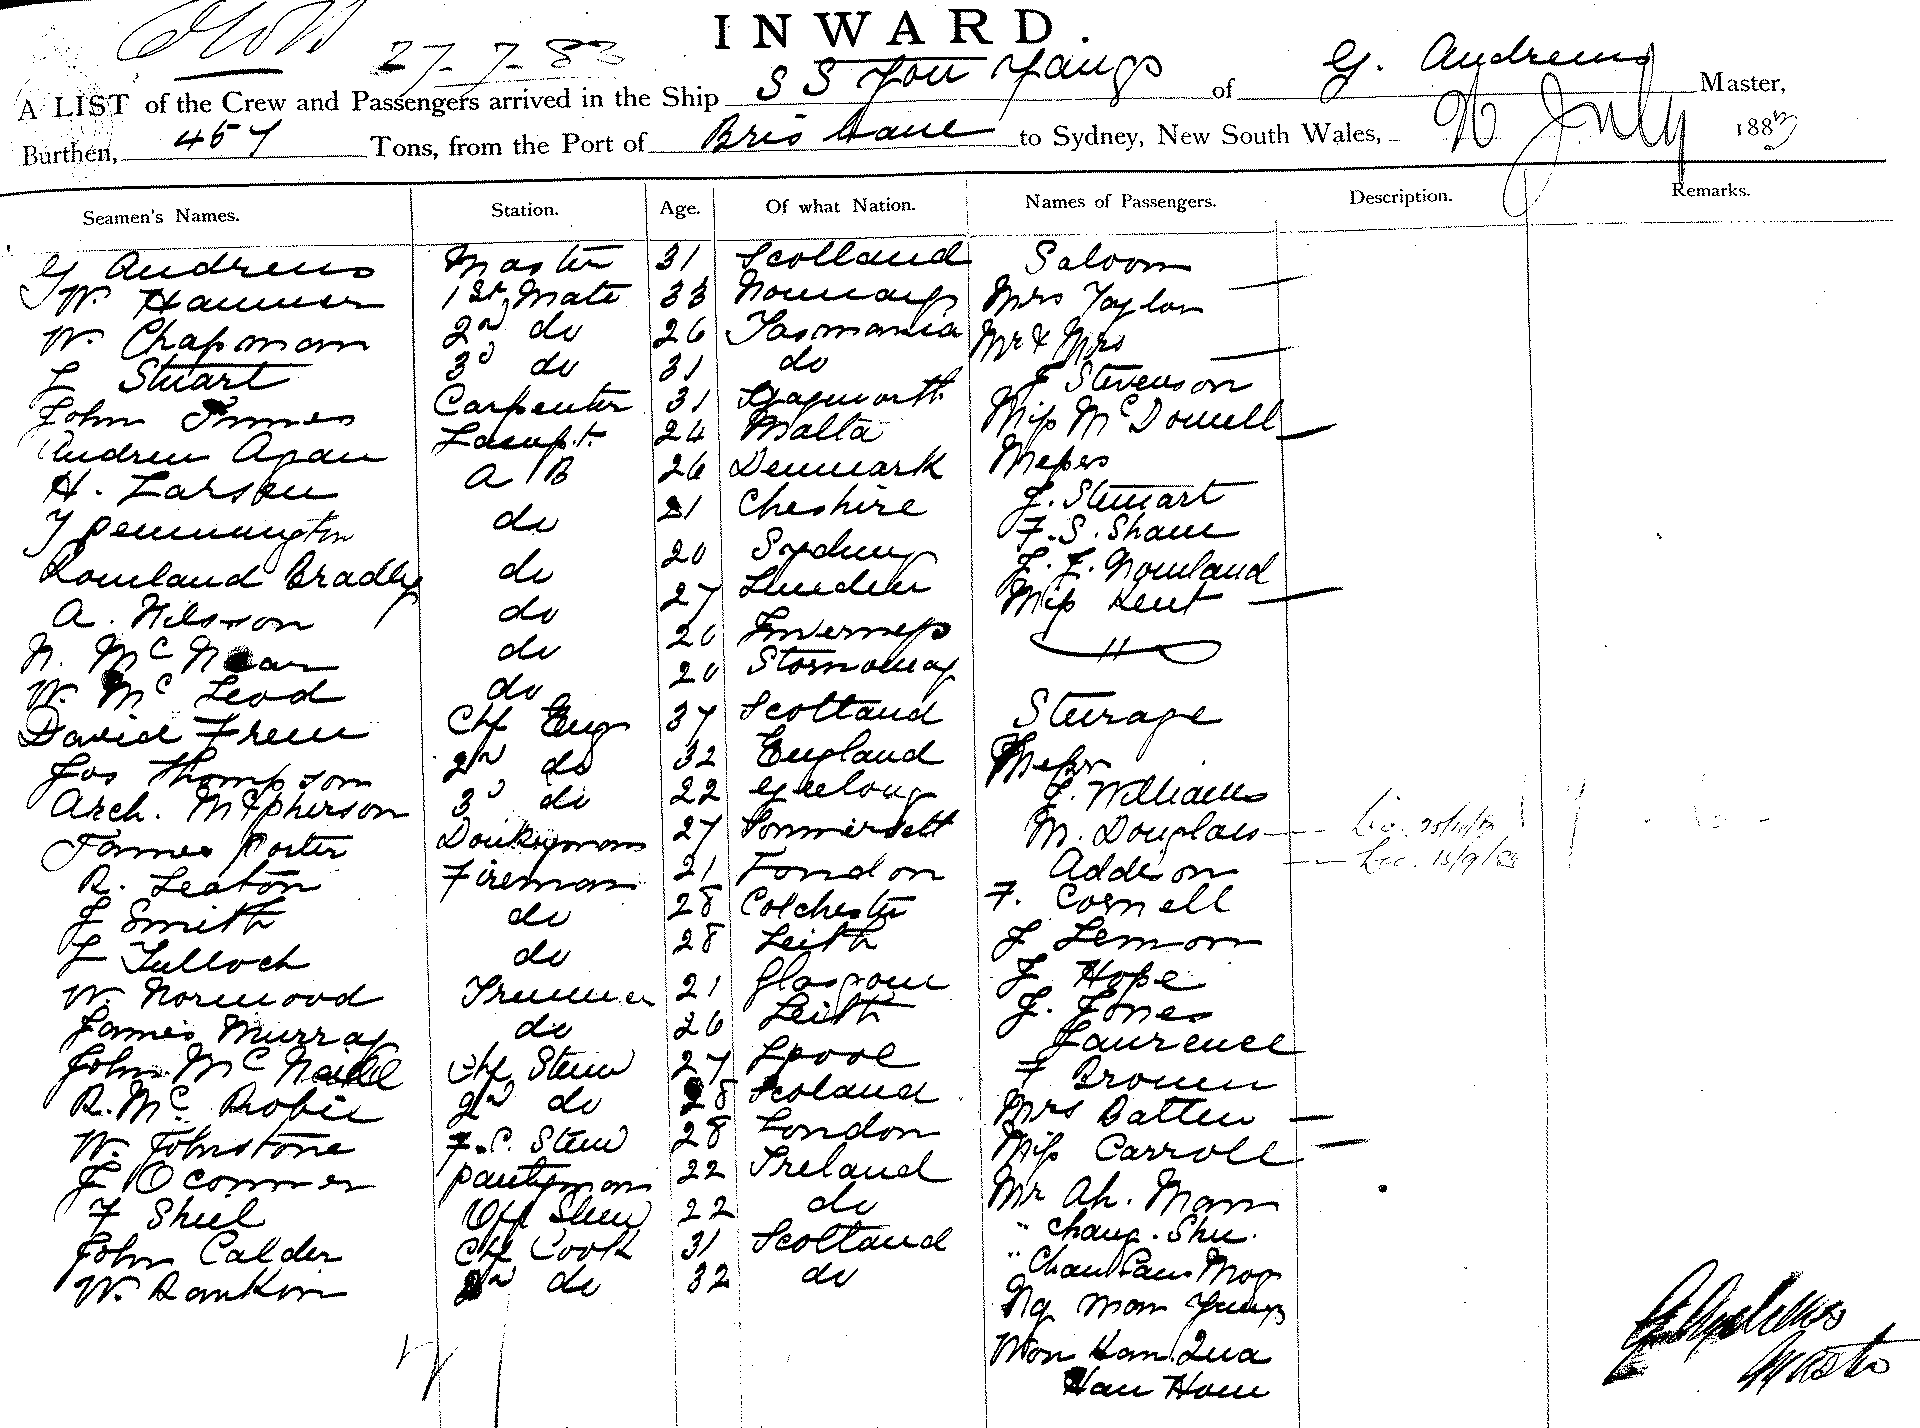 INWARD.
27-7-83
A LIST of the Crew and Passengers arrived in the Ship S S You Yangs of G. Andrews Master,
Burthen, 457 Tons, from the Port of Brisbane to Sydney, New South Wales, 26 July 1883
Seamen's Names. Station. Age. Of what Nation. Names of Passengers. Description. Remarks.
G Andrews Master 31 Scotland Saloon
W. Hammer 1st Mate 33 Norway Mrs Taylor
W. Chapman 2nd do 26 Tasmania Mr & Mrs
J Stuart 3d do 31 do J Stevenson
John Innes Carpenter 31 Miss McDowell
Andrew Agan Lampt. 24 Malta Messrs
H. Larsen A B 26 Denmark J. Stewart
T Pennington do 21 Cheshire F. S. Shaw
Rowland Bradley do 20 Sydney J. J. Nowland
A. Nilsson do 27 London Miss Kent
N. Mc do 20 Inverness "
W. McLeod do 20 Stornoway
David Frew Chf Eng 37 Scotland Steerage
Jas Thompson 2nd do 32 England Messrs
Arch. McPherson 3d do 22 Geelong J. Williams
James Porter Donkeyman 27 Sommersett M. Douglass
R. Leaton Fireman 21 London Addison
J Smith do 28 Colchester F. Cornell
J Tulloch do 28 Leith J Lemon
W. Norwood Trimmer 21 Glasgow J Hope
James Murray do 26 Leith J. Jones
John McNeill Chf Stew 27 Lpool Laurence
R. Mc Robie 2nd do 28 Scoland F Brown
W. Johnstone F.C. Stew 28 London Mrs Batten
J Oconner Pantryman 22 Ireland Miss Carroll
F Sheil Off Stew 22 do Mr Ah. Mam
John Calder Chf Cook 31 Scotland " Chang. Shu.
W. Rankin 2nd do 32 do " Chan Pau Moy
Ng Mon
Mon Kam Qua
Hau How
Master